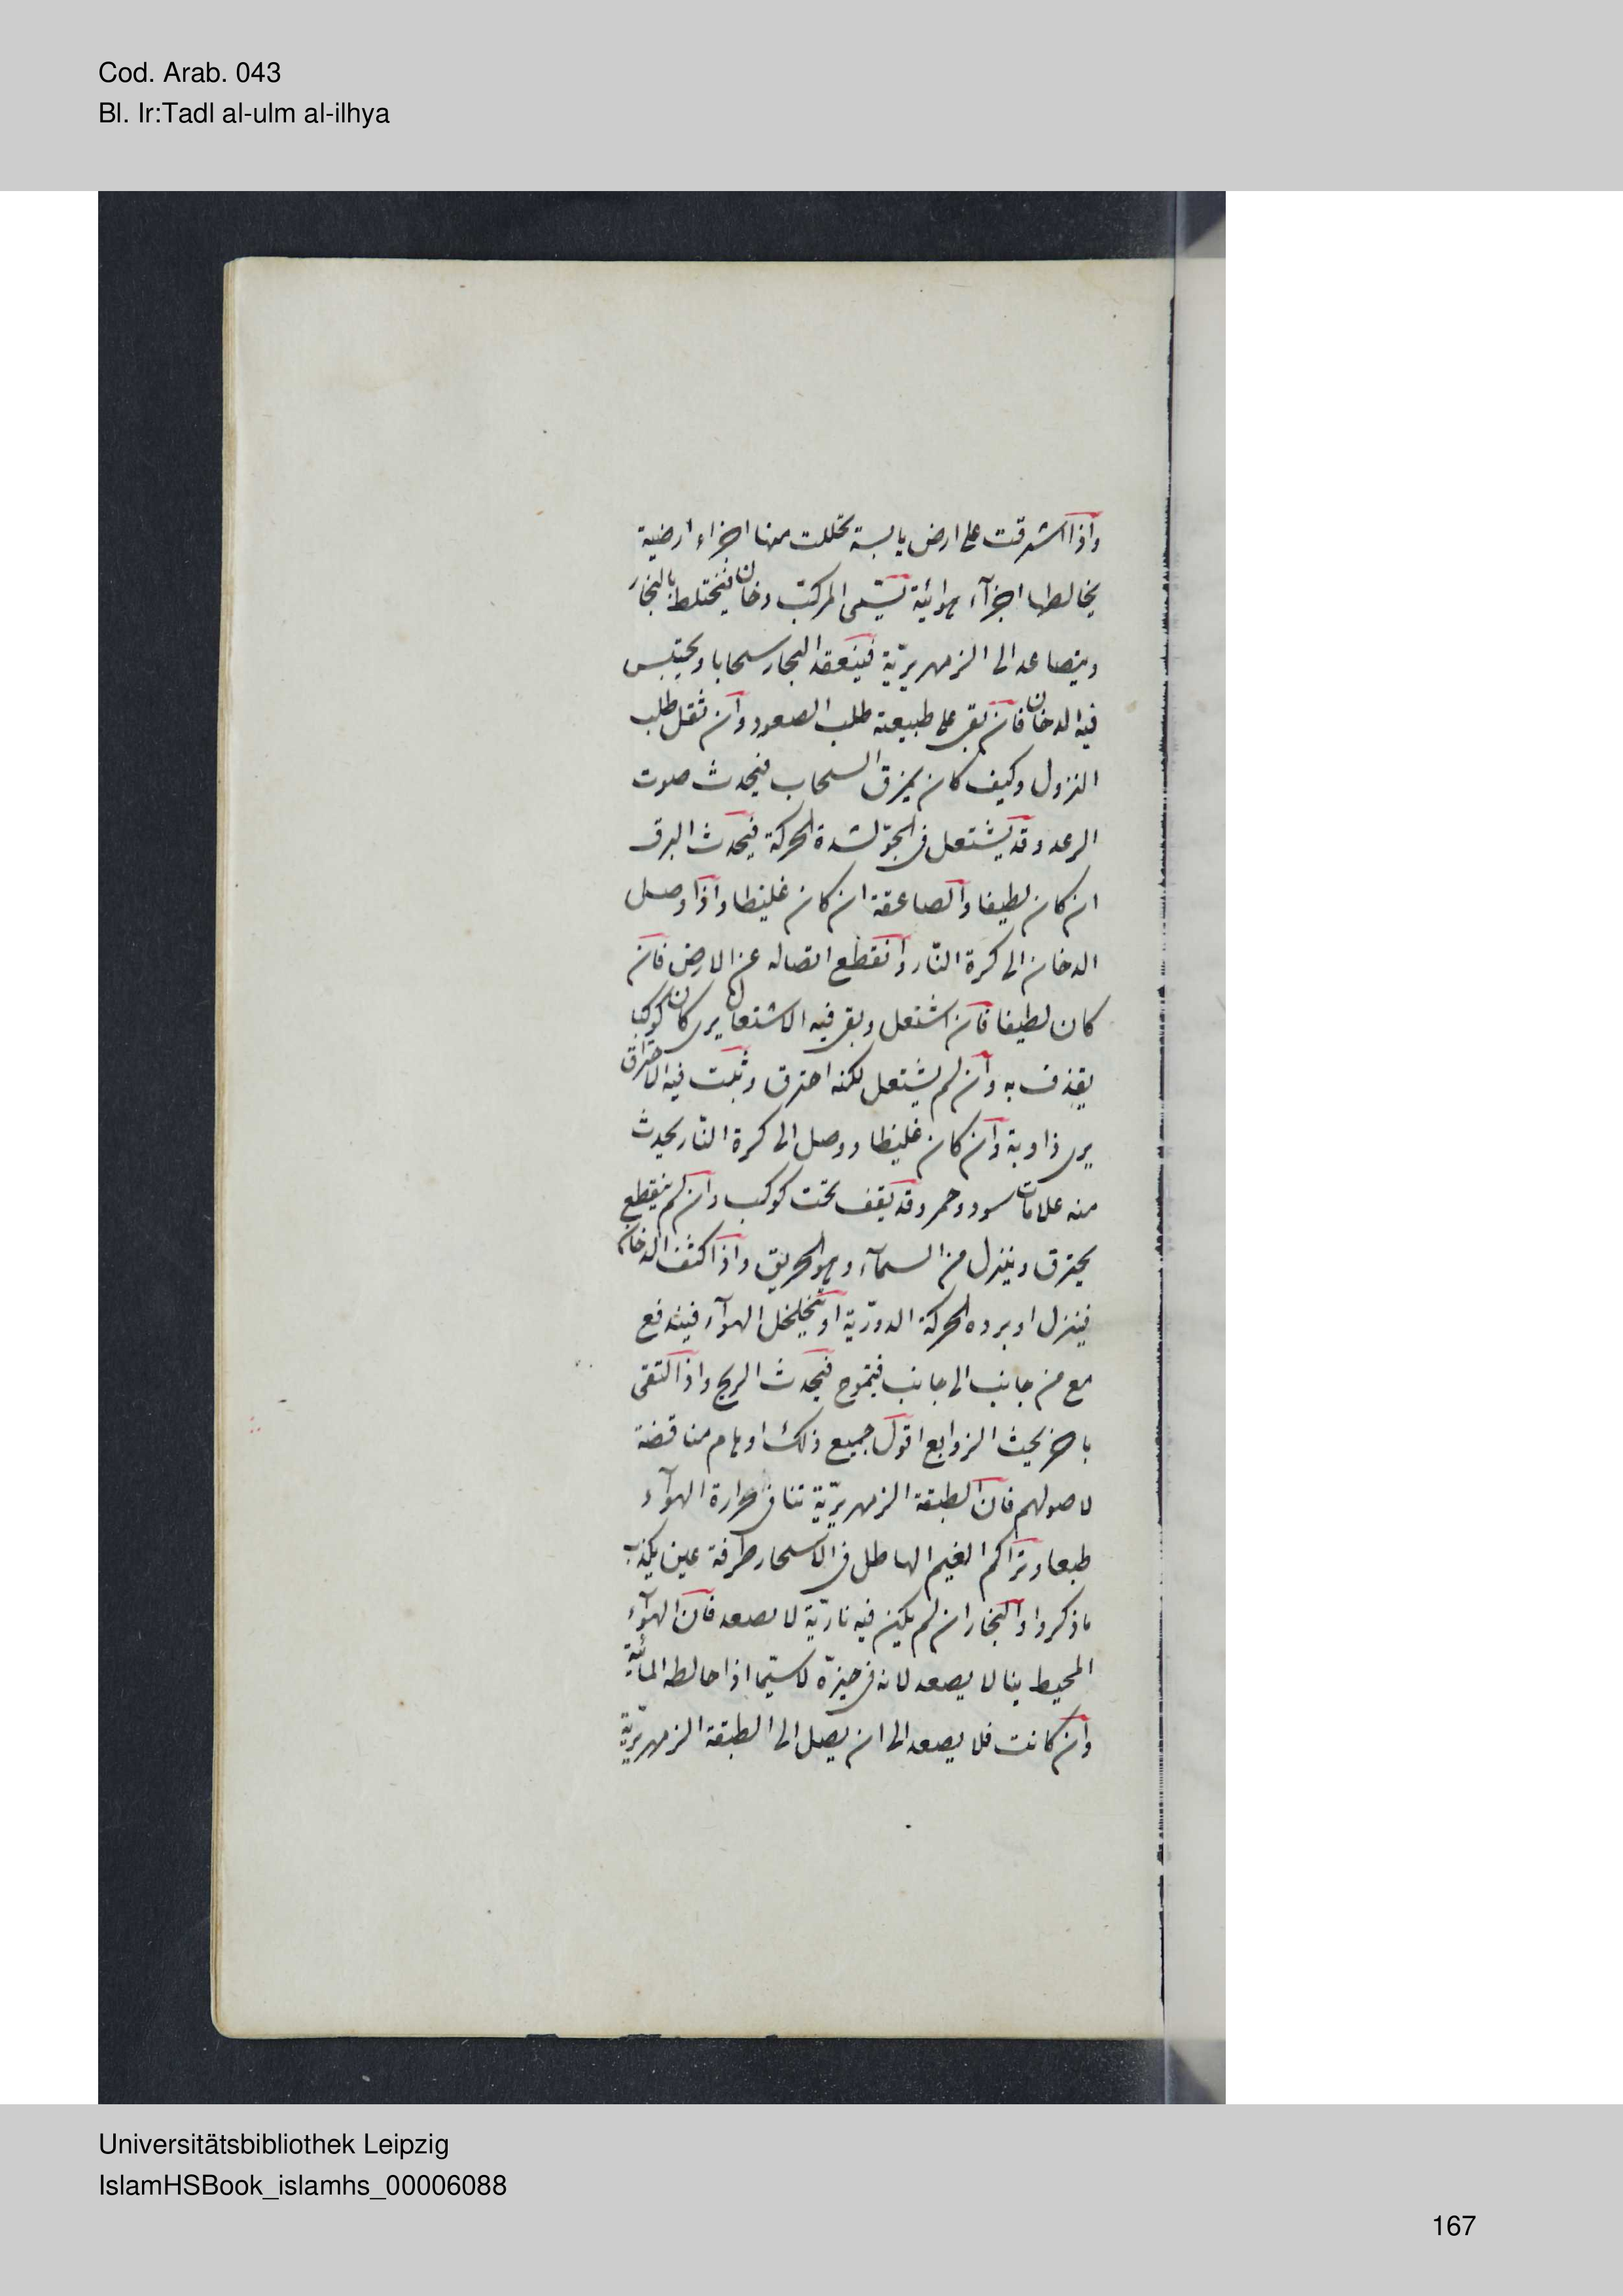 Cod. Arab. 043
Bl. Ir:Tadl al-ulm al-ilhya
واذا اشرقت على ارض يابسة تحللت منها اجزاء ارضية
يخالطها اجزآء هوائية يسمى المركب دخان فيختلط بالبخار
ويتصاعد الى الزمهريرية فينعقد البخار سحابا ويحتبس
فيه الدخان فان بقى على طبيعته طلب الصعود وان ثقل طلب
النزول وكيف كان يمزق السحاب فيحدث صوت
الرعد وقد يشتعل فى الجو لشدة الحركة فيحدث البرق
ان كان لطيفا والصاعقة ان كان غليظا واذا وصل
الدخان الى كرة النار وانقطع اتصاله عن الارض فان
كان لطيفا فان اشتعل وبقى فيه الاشتعال يرى كان كوكبا
يقذف به وان لم يشتعل لكنه احترق وثبت فيه الاحتراق
يرى ذاوبة وان كان غليظا ووصل الى كرة النار يحدث
منه علامات سود وحمر وقد يقف تحت كوكب وان لم ينقطع
يحترق وينزل من السمآء وهو الحريق واذا كثف الدخان
فينزل او برده الحركة الدورية او يتخلخل الهوآء فيندفع
مع من جانب الى جانب فيتموج فيحدث الريح واذا التقى
باخر يحث الزوابع اقول جميع ذلك اوهام مناقضة
لاصولهم فان الطبقة الزمهريرية تنافى حرارة الهوآء
طبعا وتراكم الغيم الهاطل فى الاسحار طرفة عين يكذب
ما ذكروا والبخار ان لم يكن فيه نارية لا يصعد فان الهوآء
المحيط بنا لا يصعد لانه فى حيزه لا سيما اذا خالطه المائية
وان كانت فلا يصعد الى ان يصل الى الطبقة الزمهريرية
Universitätsbibliothek Leipzig
IslamHSBook_islamhs_00006088
167